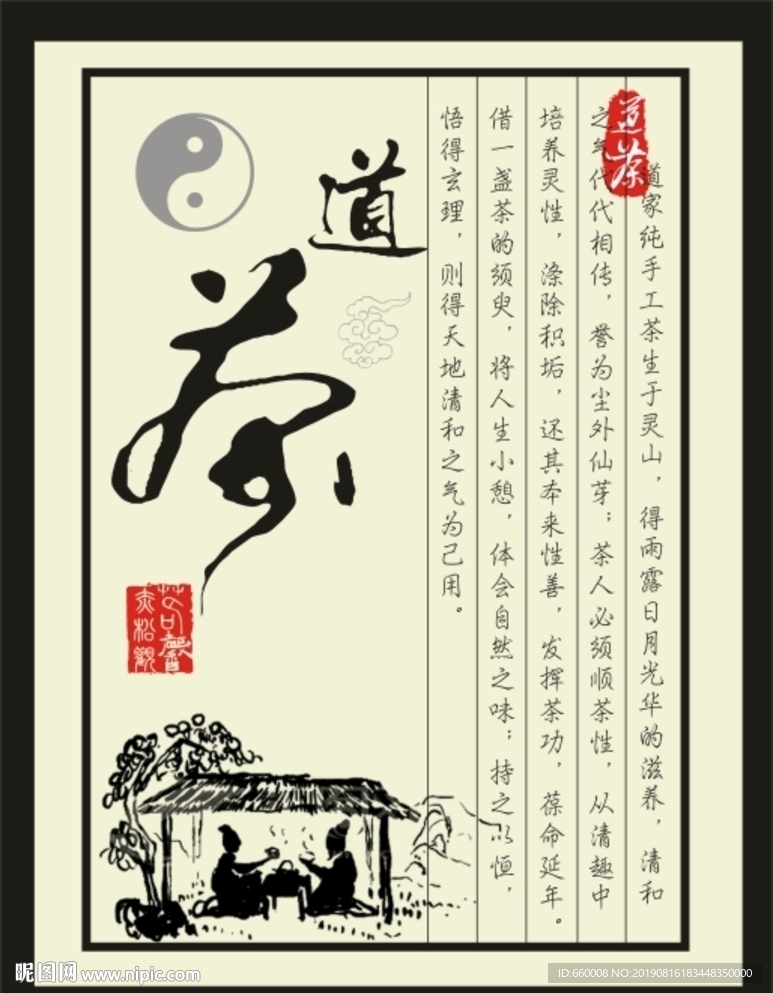 道茶
道家纯手工茶生于灵山，得雨露日月光华的滋养，清和
之气代代相传，誉为尘外仙芽；茶人必须顺茶性，从清趣中
培养灵性，涤除积垢，还其本来性善，发挥茶功，葆命延年。
借一盏茶的须臾，将人生小憩，体会自然之味；持之以恒，
悟得玄理，则得天地清和之气为己用。
道
茶
赤松观
昵图网 www.nipic.com
ID:660008 NO:20190816183448350000